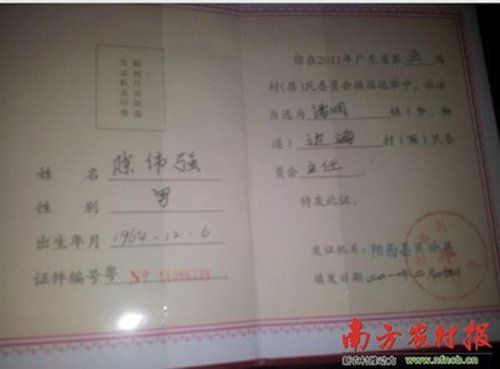 贴照片处加盖
发证机关印章
姓 名 陈伟强
性 别 男
出生年月 1964.12.6
证件编号粤 Nº
你在2011年广东省第五届
村(居)民委员会换届选举中,依法
当选为 镇(乡、街
道) 边海 村(居)民委
员会 主任
特发此证。
发证机关: 阳西县民政局
填发日期 二〇一一年二月
南方农村报
新农村推动力 www.nfncb.cn